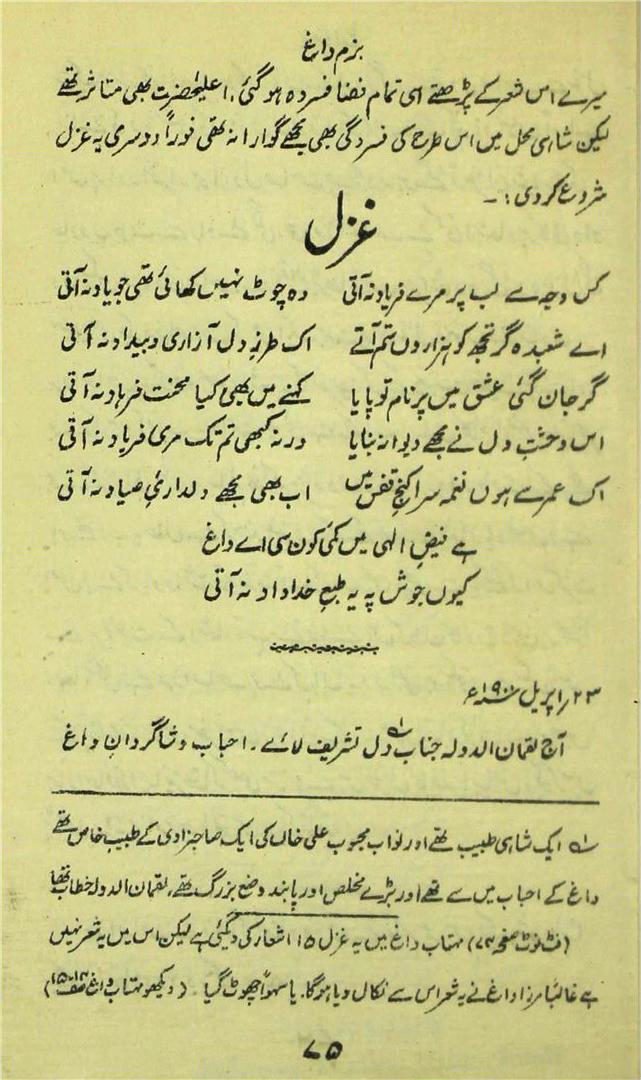 بزم داغ
میرے اس شعر کے پڑھتے ہی تمام فضا فسردہ ہو گئی، اعلیٰحضرت بھی متاثر تھے
لیکن شاہی محل میں اس طرح کی فسردگی بھی مجھے گوارا نہ تھی فوراً دوسری یہ غزل
شروع کر دی :۔
غزل
کس وجہ سے لب پر مرے فریاد نہ آتی وہ چوٹ نہیں کھائی تھی جو یاد نہ آتی
اے شعبدہ گر تجھ کو ہزاروں ستم آتے اک طرزِ دل آزاری و بیداد نہ آتی
گر جان گئی عشق میں پر نام تو پایا کہنے میں بھی کیا محنت فرہاد نہ آتی
اس وحشتِ دل نے مجھے دیوانہ بنایا ورنہ کبھی تم تک مری فریاد نہ آتی
اک عمر سے ہوں نغمہ سرا کنجِ قفس میں اب بھی مجھے دلداریِٔ صیاد نہ آتی
ہے فیضِ الٰہی میں کمی کون سی اے داغ
کیوں جوش پہ یہ طبعِ خداداد نہ آتی
۲۳؍ اپریل ۱۹۰۱ء
آج لقمان الدولہ جناب دل تشریف لائے۔ احباب و شاگردانِ داغ
ایک شاہی طبیب تھے اور نواب محبوب علی خاں کی ایک صاحبزادی کے طبیب خاص تھے
داغ کے احباب میں سے تھے اور بڑے مخلص اور پابند وضع بزرگ تھے، لقمان الدولہ خطاب تھا
(فٹ نوٹ صفحہ ۷۴) مہتاب داغ میں یہ غزل ۱۵ اشعار کی دیگئی ہے لیکن اس میں یہ شعر نہیں
ہے غالباً مرزا داغ نے یہ شعر اس سے نکال دیا ہوگا۔ یا سہواً چھوٹ گیا۔ (دیکھو مہتاب داغ
۷۵